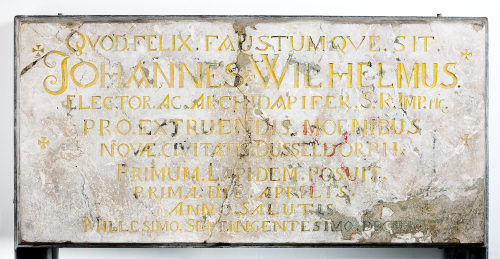 QVOD. FELIX. FAUSTUMQVE. SIT.
JOHANNES. WILHELMUS.
ELECTOR. AC. ARCHIDAPIFER. S. R. IMP.
PRO. EXTRUENDIS. MOENIBUS
NOVÆ. CIVITATIS. DUSSELDORPII.
PRIMUM. LAPIDEM. POSUIT.
PRIMA. DIE. APRILIS
ANNO. SALUTIS
MILLESIMO. SEPTINGENTESIMO.